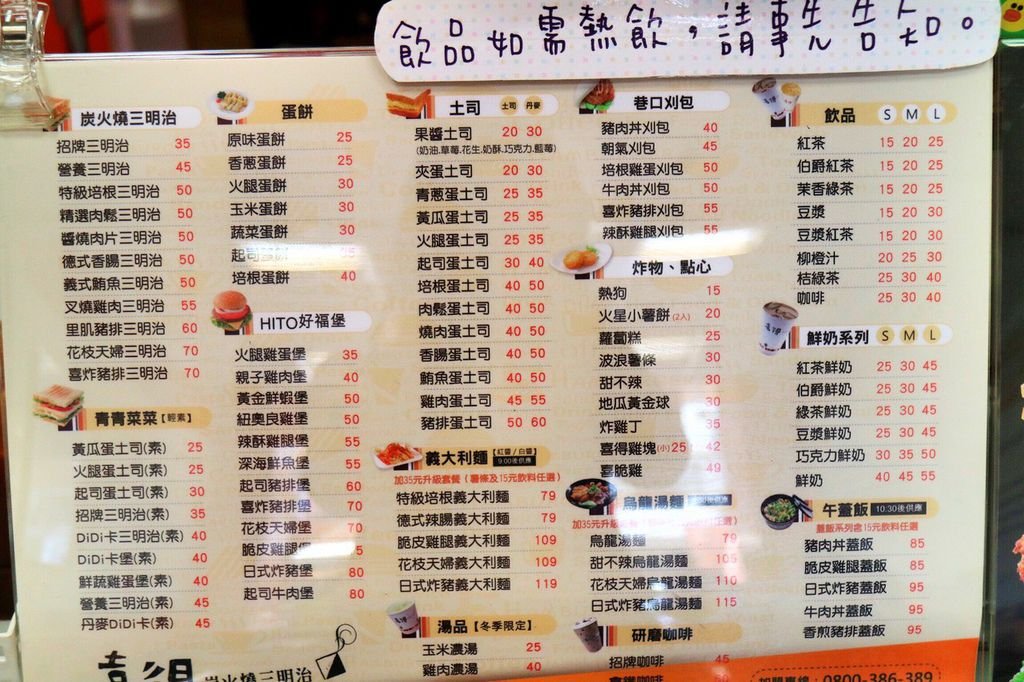 飲品如需熱飲，請事先告知。
炭火燒三明治
招牌三明治 35
營養三明治 45
特級培根三明治 50
精選肉鬆三明治 50
醬燒肉片三明治 50
德式香腸三明治 50
義式鮪魚三明治 50
叉燒雞肉三明治 55
里肌豬排三明治 60
花枝天婦三明治 70
喜炸豬排三明治 70
青青菜菜【輕素】
黃瓜蛋土司(素) 25
火腿蛋土司(素) 25
起司蛋土司(素) 30
招牌三明治(素) 35
DiDi卡三明治(素) 40
DiDi卡(素) 40
鮮蔬雞蛋堡(素) 40
營養三明治(素) 45
丹麥DiDi卡(素) 45
炭火燒三明治
蛋餅
原味蛋餅 25
香蔥蛋餅 25
火腿蛋餅 30
玉米蛋餅 30
蔬菜蛋餅 30
起司蛋餅
培根蛋餅 40
HITO好福堡
火腿雞蛋堡 35
親子雞肉堡 40
黃金鮮蝦堡 50
紐奧良雞堡 50
辣酥雞腿堡 55
深海鮮魚堡 55
起司豬排堡 60
喜炸豬排堡 70
花枝天婦堡 70
脆皮雞腿堡
日式炸豬堡 80
起司牛肉堡 80
土司 土司 丹麥
果醬土司 20 30
(奶油.草莓.花生.奶酥.巧克力.藍莓)
夾蛋土司 20 30
青蔥蛋土司 25 35
黃瓜蛋土司 25 35
火腿蛋土司 25 35
起司蛋土司 30 40
培根蛋土司 40 50
肉鬆蛋土司 40 50
燒肉蛋土司 40 50
香腸蛋土司 40 50
鮪魚蛋土司 40 50
雞肉蛋土司 45 55
豬排蛋土司 50 60
義大利麵【紅醬/白醬】 9:00後供應
加35元升級套餐（薯條及15元飲料任選）
特級培根義大利麵 79
德式辣腸義大利麵 79
脆皮雞腿義大利麵 109
花枝天婦義大利麵 109
日式炸豬義大利麵 119
湯品【冬季限定】
玉米濃湯 25
雞肉濃湯 40
巷口刈包
豬肉丼刈包 40
朝氣刈包 45
培根雞蛋刈包 50
牛肉丼刈包 50
喜炸豬排刈包 55
辣酥雞腿刈包 55
炸物、點心
熱狗 15
火星小薯餅(2入) 20
蘿蔔糕 25
波浪薯條 30
甜不辣 30
地瓜黃金球 30
炸雞丁 35
喜得雞塊(小)25 42
喜脆雞 49
烏龍湯麵
加35元升級
烏龍湯麵 79
甜不辣烏龍湯麵 105
花枝天婦烏龍湯麵 110
日式炸豬烏龍湯麵 115
研磨咖啡
招牌咖啡 45
飲品 S M L
紅茶 15 20 25
伯爵紅茶 15 20 25
茉香綠茶 15 20 25
豆漿 15 20 30
豆漿紅茶 15 20 30
柳橙汁 20 25 30
桔綠茶 25 30 40
咖啡 25 30 40
鮮奶系列 S M L
紅茶鮮奶 25 30 45
伯爵鮮奶 25 30 45
綠茶鮮奶 25 30 45
豆漿鮮奶 25 30 45
巧克力鮮奶 30 35 50
鮮奶 40 45 55
午蓋飯 10.30後供應
蓋飯系列含15元飲料任選
豬肉丼蓋飯 85
脆皮雞腿蓋飯 85
日式炸豬蓋飯 95
牛肉丼蓋飯 95
香煎豬排蓋飯 95
加盟專線：0800-386-389